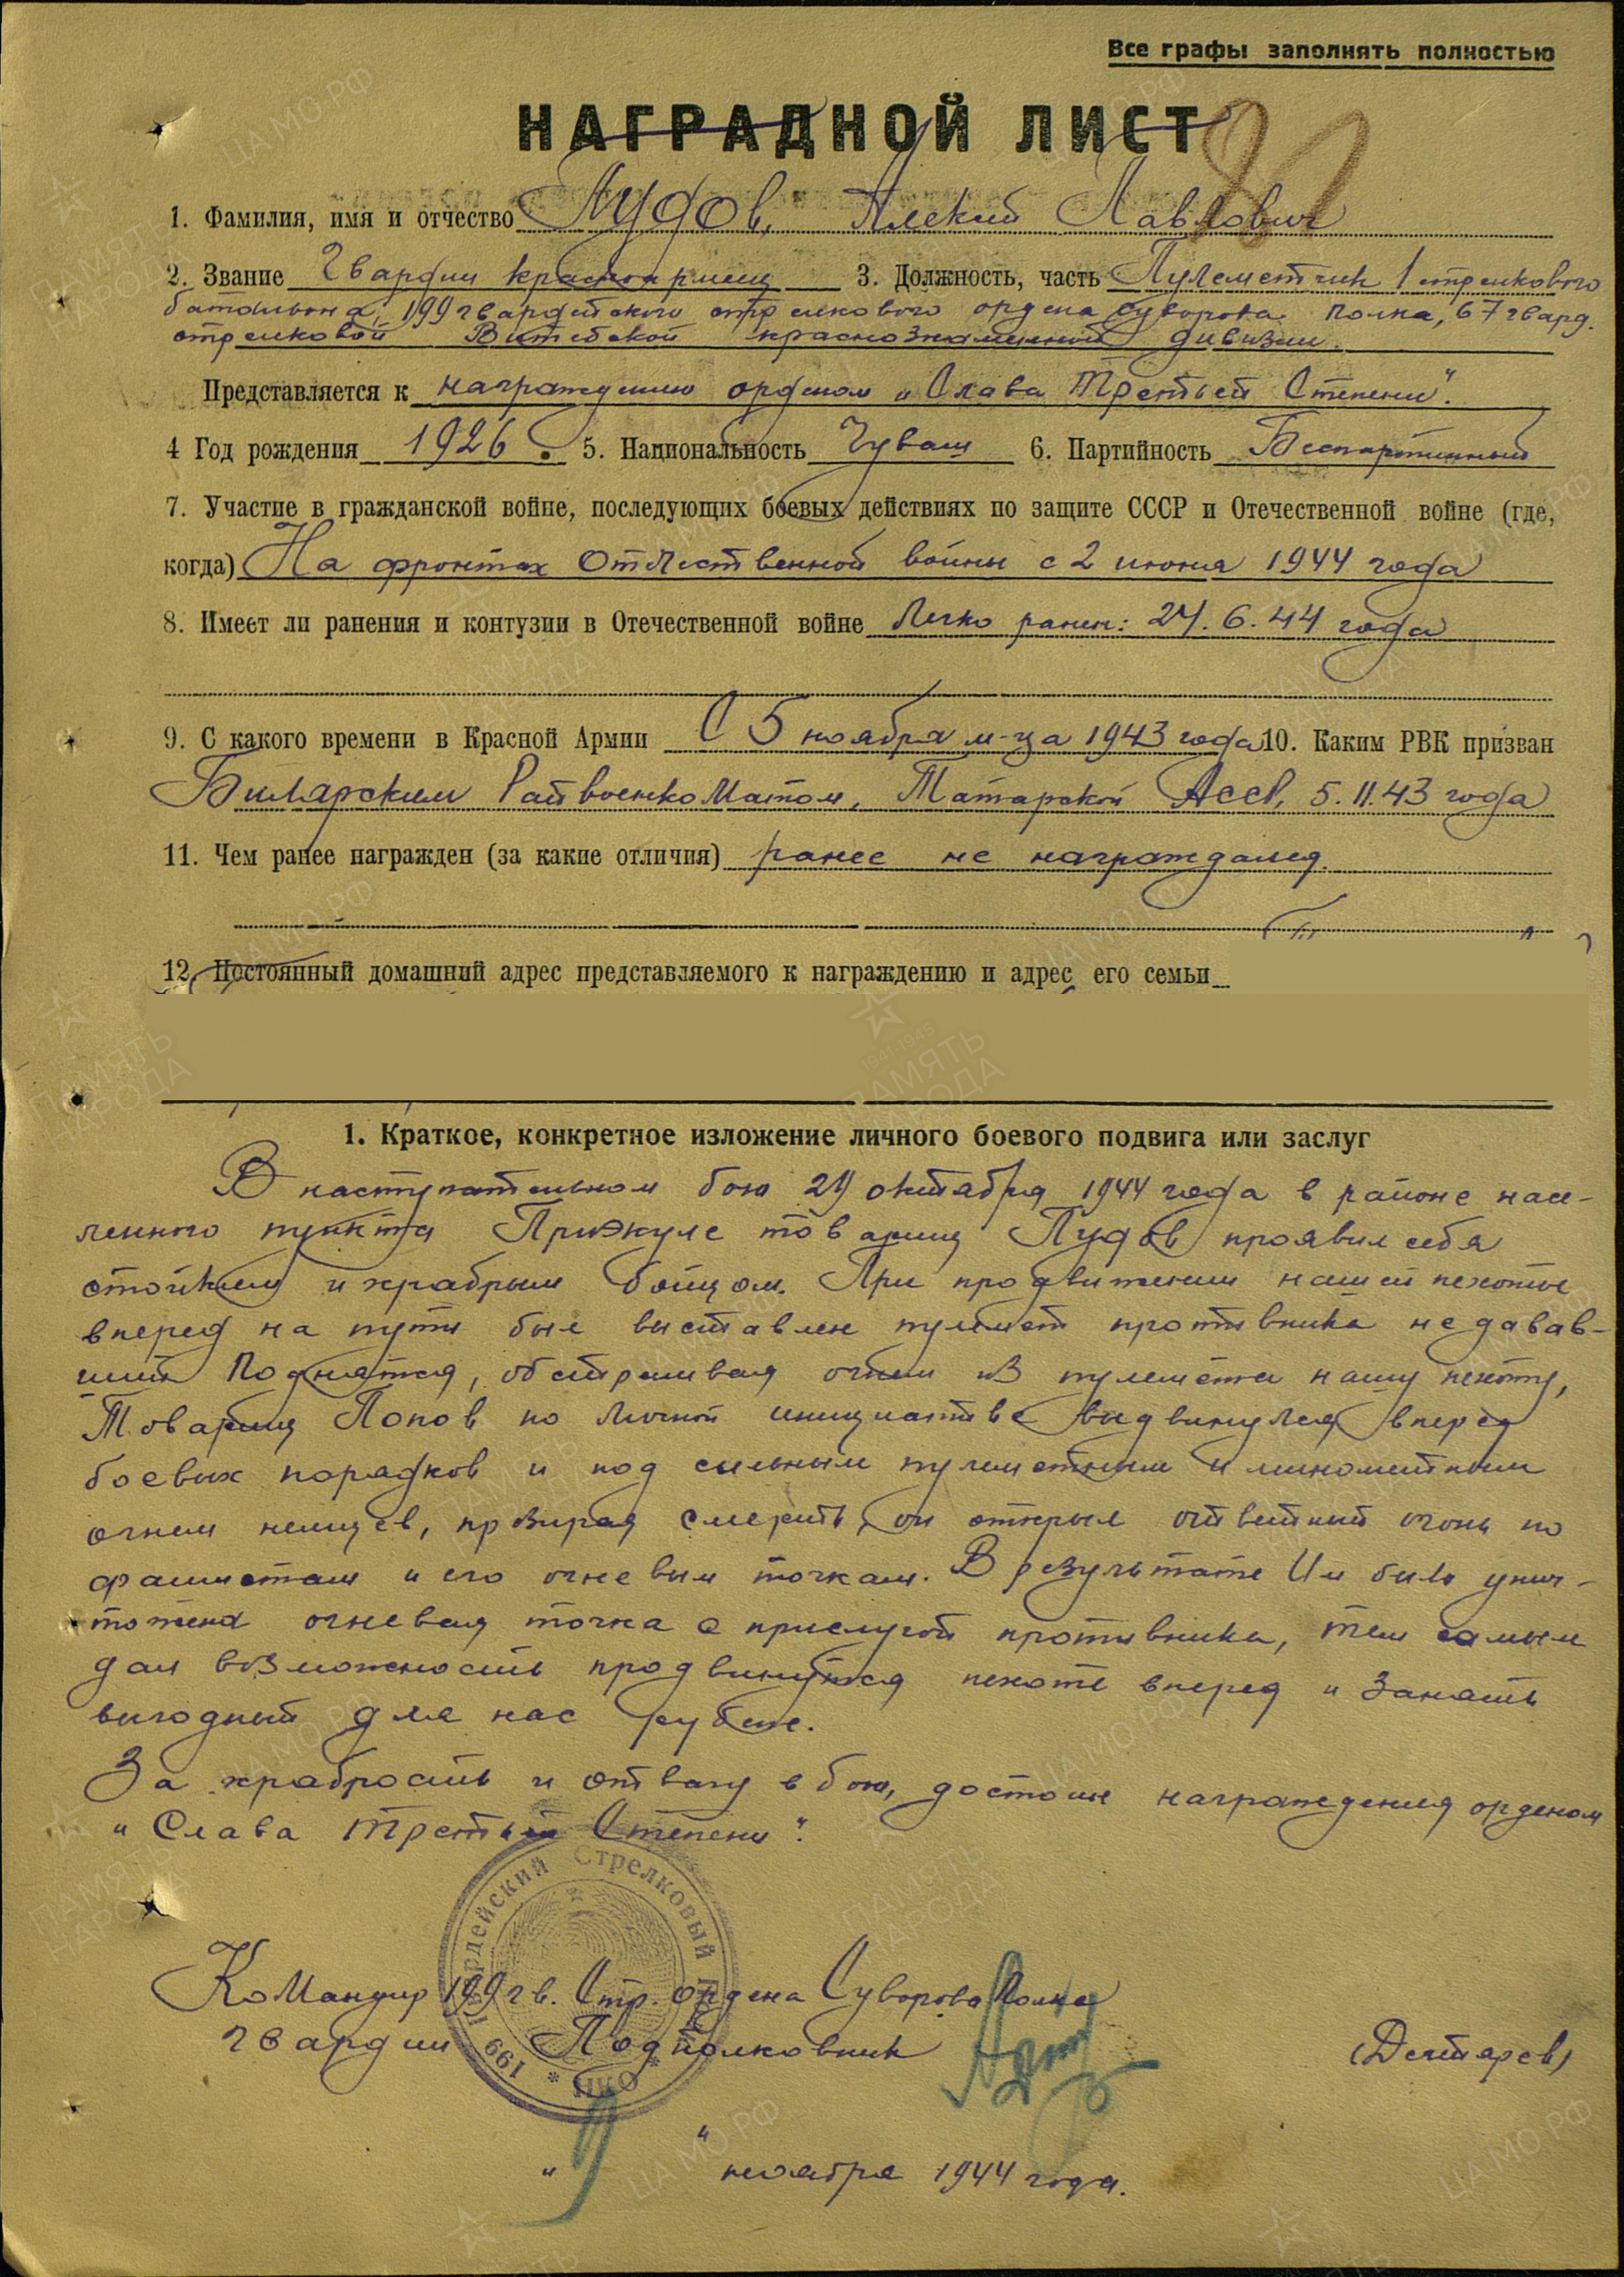 Все графы заполнять полностью
НАГРАДНОЙ ЛИСТ
1. Фамилия, имя и отчество Пудов, Алексий Павлович
2. Звание Гвардии красноармеец 3. Должность, часть Пулеметчик 1 стрелкового
батальона, 199 гвардейского стрелкового ордена Суворова полка, 67 гвард.
стрелковой Витебской краснознаменной дивизии.
Представляется к награждению орденом „Слава Третьей Степени".
4 Год рождения 1926. 5. Национальность Чуваш 6. Партийность Беспартийный
7. Участие в гражданской войне, последующих боевых действиях по защите СССР и Отечественной войне (где,
когда) На фронтах Отечественной войны с 2 июня 1944 года
8. Имеет ли ранения и контузии в Отечественной войне Легко ранен: 24.6.44 года
9. С какого времени в Красной Армии С 5 ноября м-ца 1943 года 10. Каким РВК призван
Билярским Райвоенкоматом, Татарской АССР, 5.11.43 года
11. Чем ранее награжден (за какие отличия) ранее не награждался.
12. Постоянный домашний адрес представляемого к награждению и адрес его семьи
1. Краткое, конкретное изложение личного боевого подвига или заслуг
В наступательном бою 29 октября 1944 года в районе насе-
ленного пункта Приэкуле товарищ Пудов проявил себя
стойким и храбрым бойцом. При продвижении нашей пехоты
вперед на пути был выставлен пулемет противника не давав-
ший поднятся, обстреливая огнем из пулемета нашу пехоту,
Товарищ Попов по личной инициативе выдвинулся вперед
боевых порядков и под сильным пулеметным и минометным
огнем немцев, презирая смерть, он открыл ответный огонь по
фашистам и его огневым точкам. В результате Им была унич-
тожена огневая точка с прислугой противника, тем самым
дал возможность продвинутся пехоте вперед и занять
выгодный для нас рубеж.
За храбрость и отвагу в бою, достоин награждения орденом
„Слава Третьей Степени".
Командир 199 гв. Стр. ордена Суворова Полка
гвардии Подполковник (Дегтярев)
199 Гвардейский Стрелковый Полк * НКО *
" " ноября 1944 года.
ПАМЯТЬ НАРОДА
ЦА МО РФ